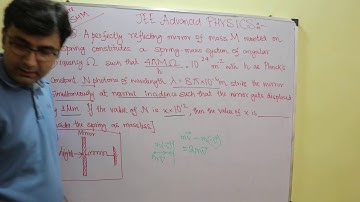 JEE Advanced PHYSICS:-
Q. A perfectly reflecting mirror of mass M mounted on
spring constitutes a spring-mass system of angular
frequency Ω such that 4πMΩ/h = 10²⁴ m⁻² with h as Planck's
constant. N photons of wavelength λ = 8π×10⁻⁶ m strike the mirror
simultaneously at normal incidence such that the mirror gets displaced
by 1μm. If the value of N is x×10¹², then the value of x is
[Consider the spring as massless]
Mirror